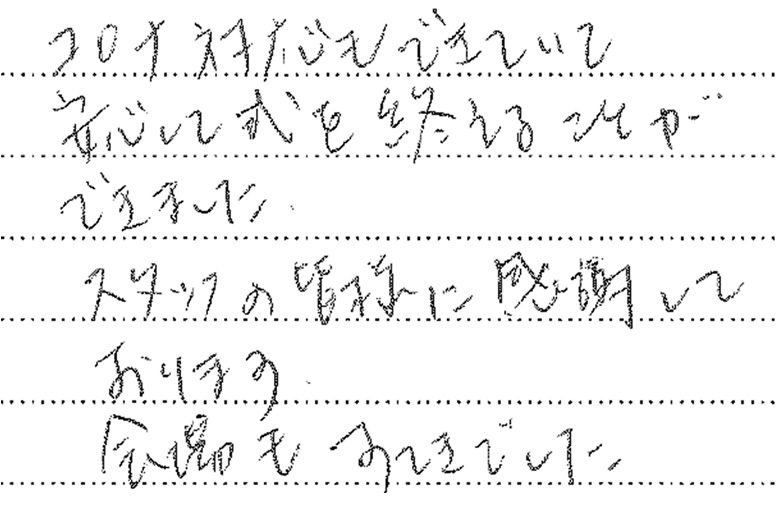 コロナ対応もできていて
安心して式を終えることが
できました.
スタッフの皆様に感謝して
おります.
会場もすてきでした.